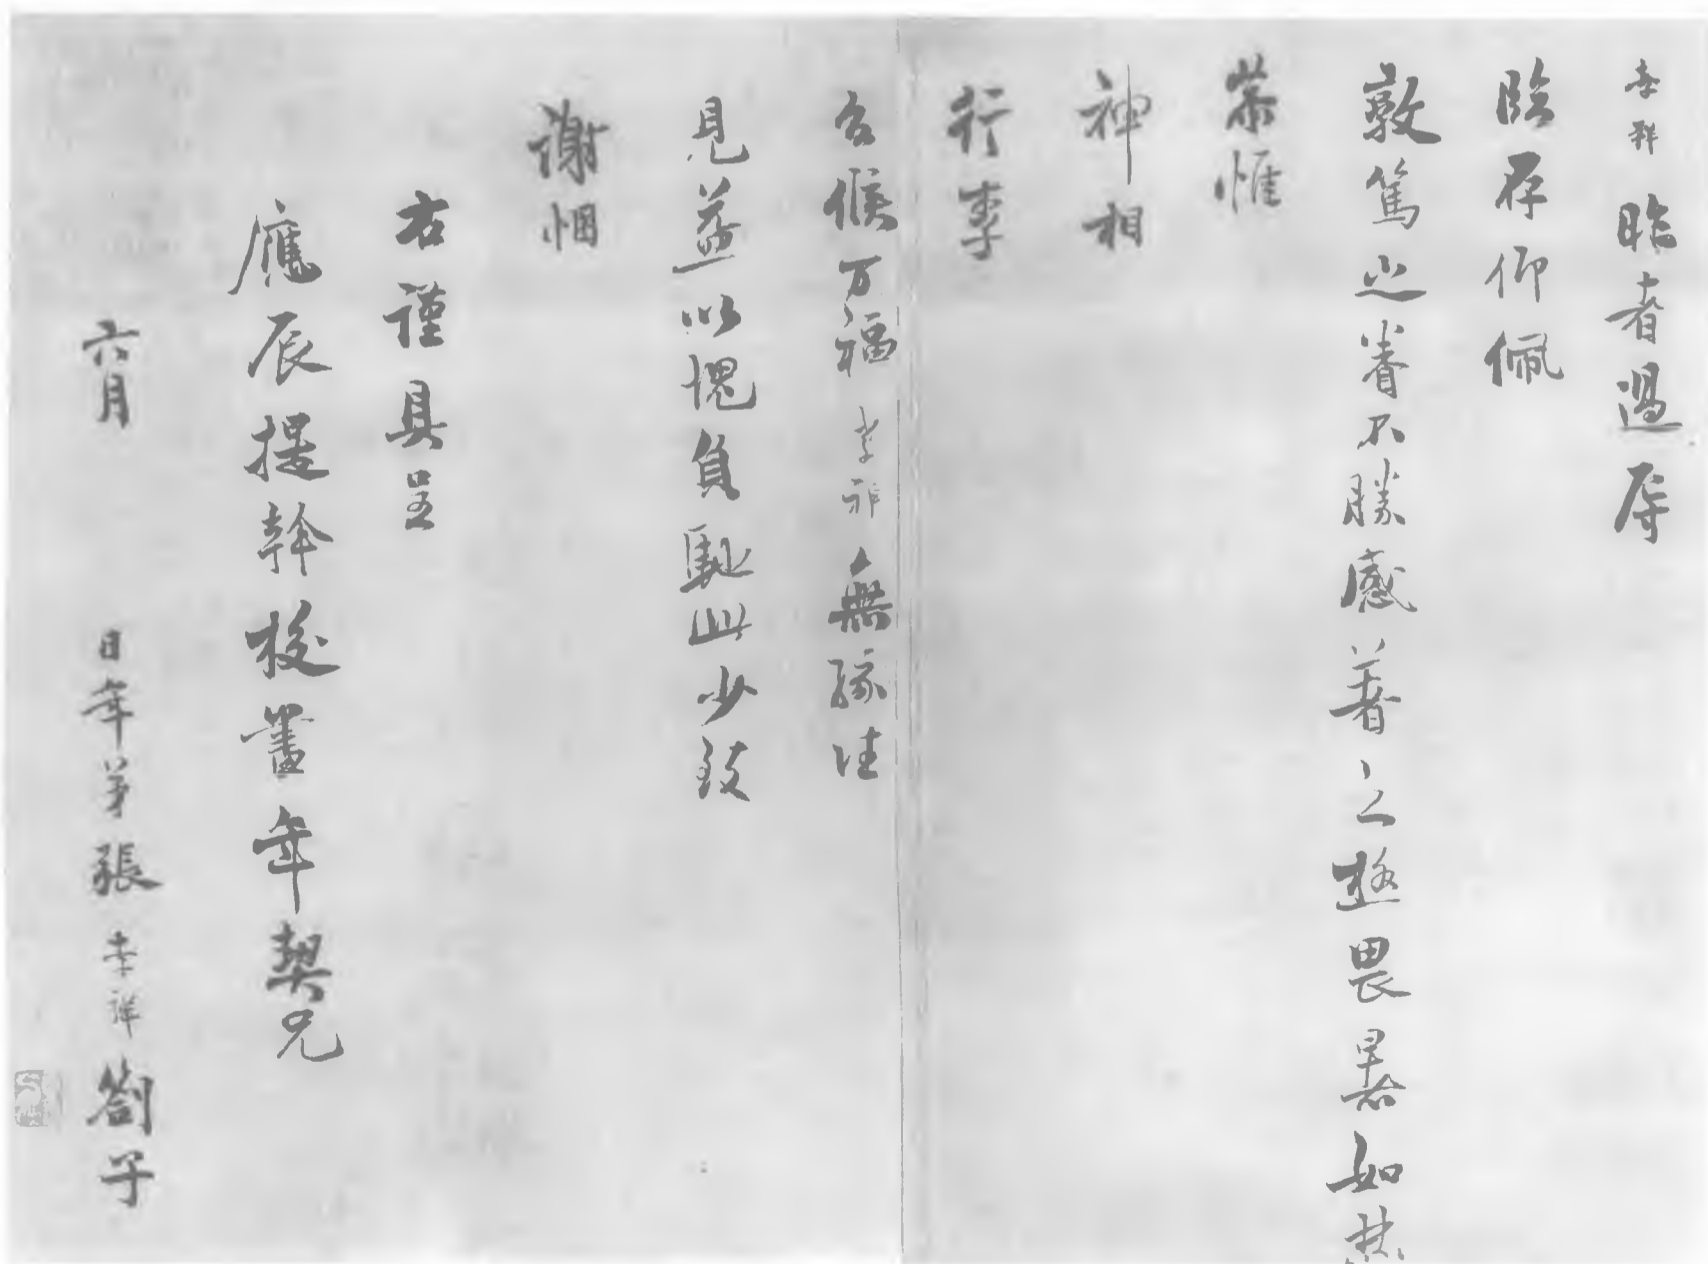 孝祥昨者過辱
臨存仰佩
敦篤之眷不勝感著之極畏暑如焚
恭惟
神相
行李
台候万福孝祥無緣往
見益以愧負馳此少致
謝悃
右謹具呈
應辰提幹校書年契兄
六月 日年弟張孝祥劄子